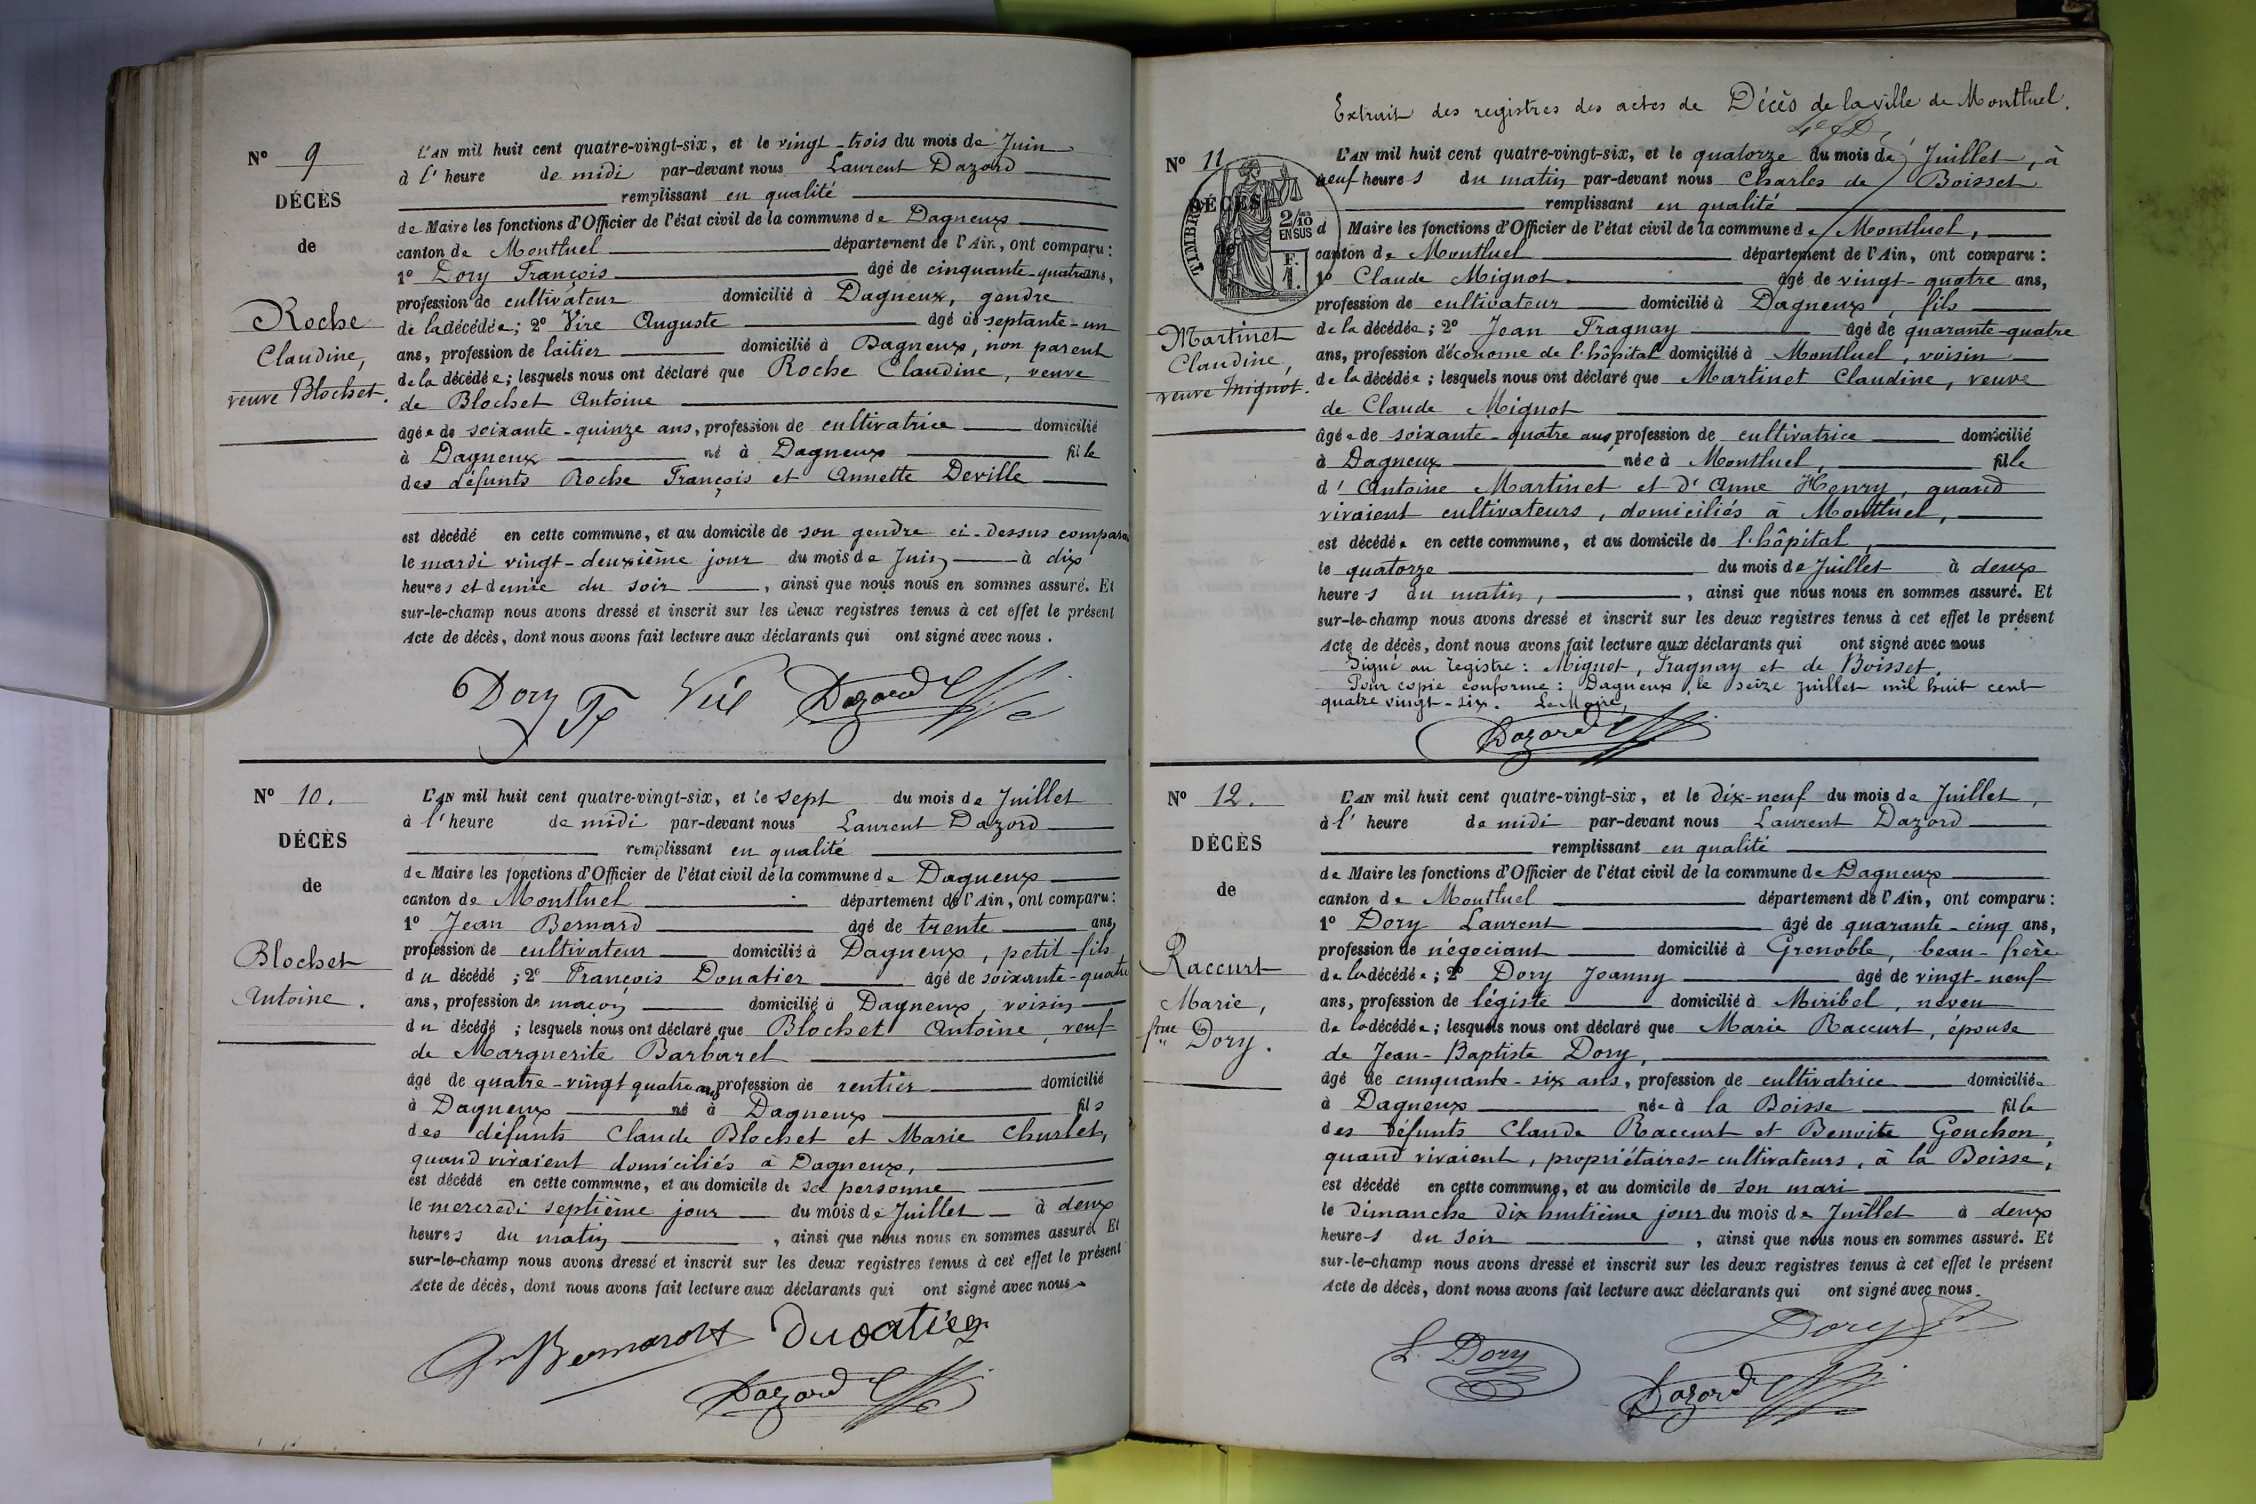 Nº 9
DÉCÈS
de
Roche
Claudine,
veuve Blochet.
L'AN mil huit cent quatre-vingt-six, et le vingt-trois du mois de Juin
à l'heure de midi par-devant nous Laurent Dazord
remplissant en qualité
de Maire les fonctions d'Officier de l'état civil de la commune de Dagneux
canton de Montluel département de l'Ain, ont comparu :
1º Dory François âgé de cinquante-quatre ans,
profession de cultivateur domicilié à Dagneux, gendre
de la décédée ; 2º Vire Auguste âgé de septante-un
ans, profession de laitier domicilié à Dagneux, non parent
de la décédée ; lesquels nous ont déclaré que Roche Claudine, veuve
de Blochet Antoine
âgée de soixante-quinze ans, profession de cultivatrice domicilié
à Dagneux né à Dagneux fille
des défunts Roche François et Annette Deville
est décédé en cette commune, et au domicile de son gendre ci-dessus
le mardi vingt-deuxième jour du mois de Juin à dix
heures et demie du soir, ainsi que nous nous en sommes assuré. Et
sur-le-champ nous avons dressé et inscrit sur les deux registres tenus à cet effet le présent
Acte de décès, dont nous avons fait lecture aux déclarants qui ont signé avec nous.
Dory Dazord
Nº 10.
DÉCÈS
de
Blochet
Antoine.
L'AN mil huit cent quatre-vingt-six, et le sept du mois de Juillet
à l'heure de midi par-devant nous Laurent Dazord
remplissant en qualité
de Maire les fonctions d'Officier de l'état civil de la commune de Dagneux
canton de Montluel département de l'Ain, ont comparu :
1º Jean Bernard âgé de trente ans,
profession de cultivateur domicilié à Dagneux, petit-fils
du décédé ; 2º François Donatier âgé de soixante-quatre
ans, profession de maçon domicilié à Dagneux, voisin
du décédé ; lesquels nous ont déclaré que Blochet Antoine, veuf
de Marguerite Barbaret
âgé de quatre-vingt quatre ans, profession de rentier domicilié
à Dagneux né à Dagneux fils
des défunts Claude Blochet et Marie Churlet,
quand vivaient domiciliés à Dagneux,
est décédé en cette commune, et au domicile de sa personne
le mercredi septième jour du mois de Juillet à deux
heures du matin, ainsi que nous nous en sommes assuré. Et
sur-le-champ nous avons dressé et inscrit sur les deux registres tenus à cet effet le présent
Acte de décès, dont nous avons fait lecture aux déclarants qui ont signé avec nous
Dazord
Extrait des registres des actes de Décès de la ville de Montluel.
Nº 11
DÉCÈS
TIMBRE
2/10
EN SUS
F.
1.
Martinet
Claudine,
veuve Mignot.
L'AN mil huit cent quatre-vingt-six, et le quatorze du mois de Juillet, à
neuf heures du matin par-devant nous Charles de Boisset
remplissant en qualité
d Maire les fonctions d'Officier de l'état civil de la commune de Montluel,
canton de Montluel département de l'Ain, ont comparu :
1º Claude Mignot âgé de vingt-quatre ans,
profession de cultivateur domicilié à Dagneux, fils
de la décédée ; 2º Jean Fragnay âgé de quarante-quatre
ans, profession d'économe de l'hôpital domicilié à Montluel, voisin
de la décédée ; lesquels nous ont déclaré que Martinet Claudine, veuve
de Claude Mignot
âgée de soixante-quatre ans, profession de cultivatrice domicilié
à Dagneux née à Montluel, fille
d'Antoine Martinet et d'Anne Henry, quand
vivaient cultivateurs, domiciliés à Montluel,
est décédée en cette commune, et au domicile de l'hôpital,
le quatorze du mois de Juillet à deux
heures du matin, ainsi que nous nous en sommes assuré. Et
sur-le-champ nous avons dressé et inscrit sur les deux registres tenus à cet effet le présent
Acte de décès, dont nous avons fait lecture aux déclarants qui ont signé avec nous
Signé au registre : Mignot, Fragnay et de Boisset.
Pour copie conforme : Dagneux, le seize juillet mil huit cent
quatre vingt-six. Le Maire,
Dazord
Nº 12.
DÉCÈS
de
Raccurt
Marie,
fme Dory.
L'AN mil huit cent quatre-vingt-six, et le dix-neuf du mois de Juillet,
à l'heure de midi par-devant nous Laurent Dazord
remplissant en qualité
de Maire les fonctions d'Officier de l'état civil de la commune de Dagneux
canton de Montluel département de l'Ain, ont comparu :
1º Dory Laurent âgé de quarante-cinq ans,
profession de négociant domicilié à Grenoble, beau-frère
de la décédée ; 2º Dory Joanny âgé de vingt-neuf
ans, profession de légiste domicilié à Miribel, neveu
de la décédée ; lesquels nous ont déclaré que Marie Raccurt, épouse
de Jean-Baptiste Dory,
âgé de cinquante-six ans, profession de cultivatrice domiciliée
à Dagneux née à la Boisse fille
des défunts Claude Raccurt et Benoite Gonchon,
quand vivaient, propriétaires-cultivateurs, à la Boisse,
est décédé en cette commune, et au domicile de son mari
le dimanche dix huitième jour du mois de Juillet à deux
heures du soir, ainsi que nous nous en sommes assuré. Et
sur-le-champ nous avons dressé et inscrit sur les deux registres tenus à cet effet le présent
Acte de décès, dont nous avons fait lecture aux déclarants qui ont signé avec nous.
L. Dory Dory
Dazord